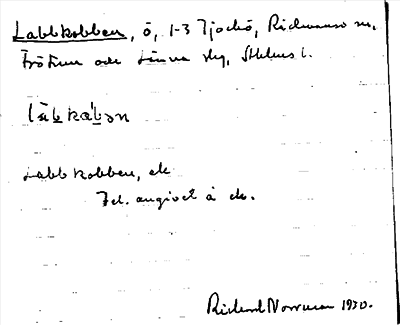 Labbkobben, ö, 1-3 Tjockö, Rådmansö sn,
Frötuna och Länna slg, Sthlms l.
lăb̲kăb̲ən
Labbkobben, ek
Fel. angivet å ek.
Rickard Norrman 1930.